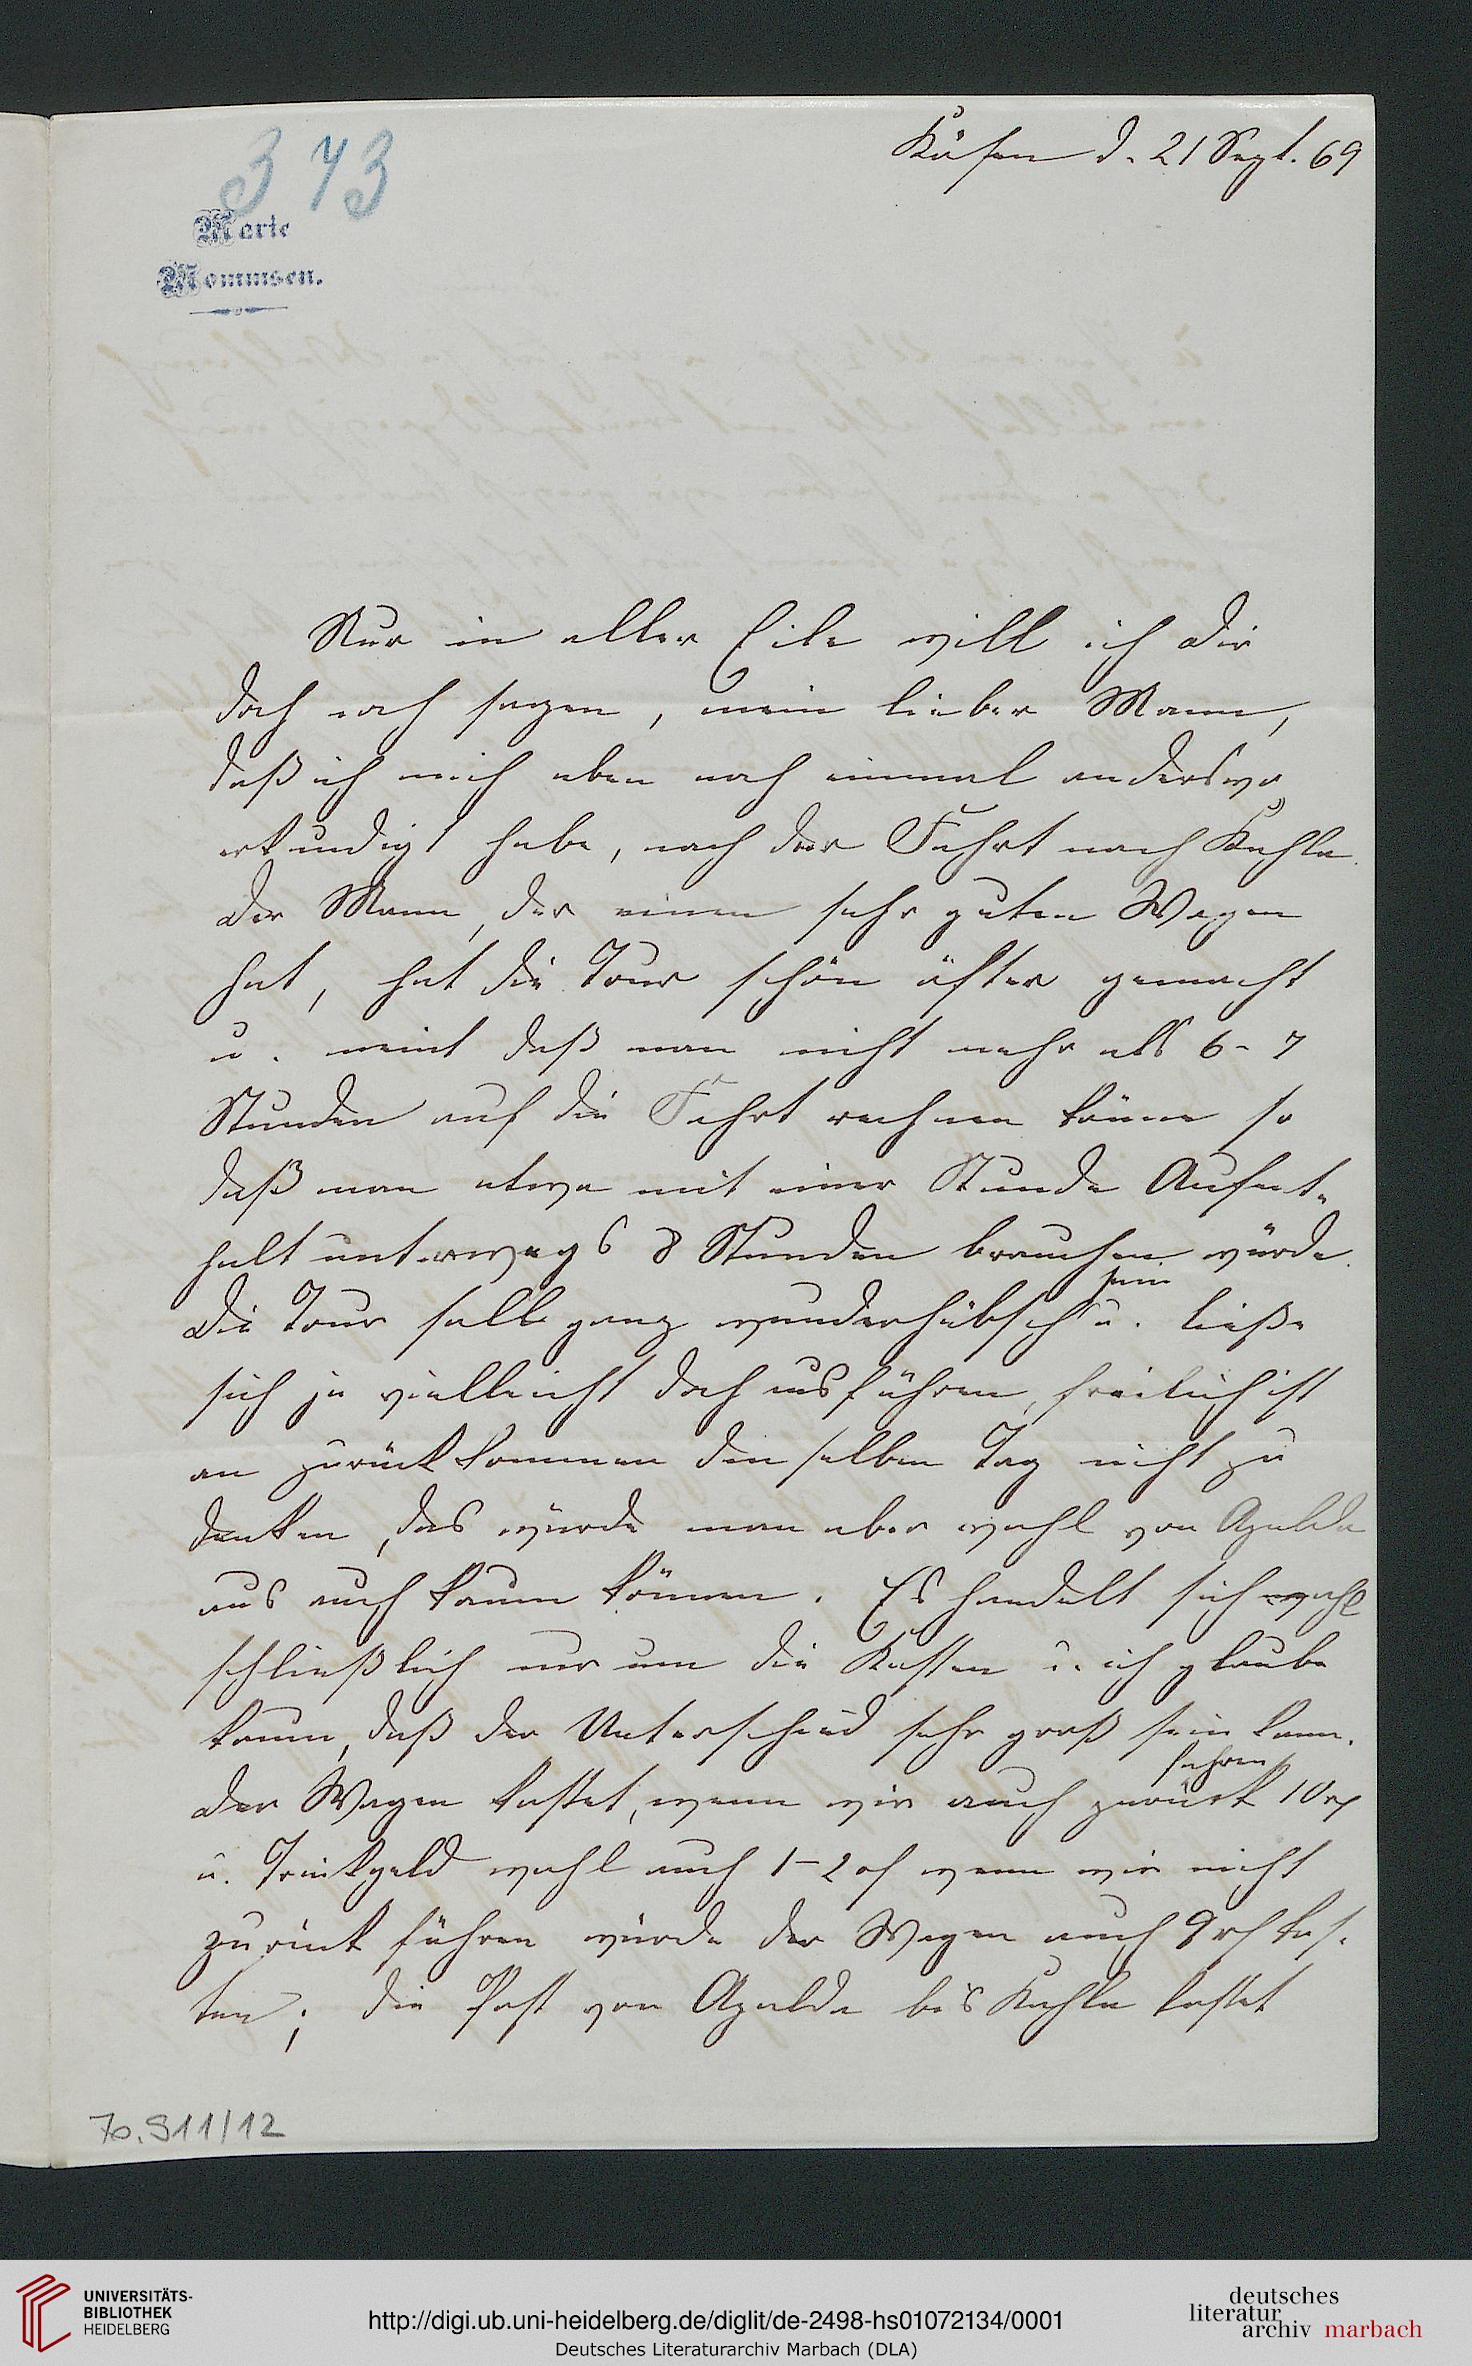 Kösen d. 21 Sept. 69
343
Marie
Mommsen.
Nur in aller Eile will ich Dir
doch noch sagen, mein lieber Mann,
daß ich mich eben noch einmal anderswo
erkundigt habe, nach der Fahrt nach Kahla.
Der Mann, der einen sehr guten Wagen
hat, hat die Tour schön öfter gemacht
u. meint daß man nicht mehr als 6-7
Stunden auf die Fahrt rechnen könne so
daß man etwa mit einer Stunde Aufent-
halt unterwegs 8 Stunden brauchen würde.
Die Tour soll ganz wunderhübsch sein u. ließe
sich ja vielleicht doch ausführen, freilich ist
an zurückkommen denselben Tag nicht zu
denken, das würde man aber wohl von Apolda
aus auch kaum können. Es handelt sich wohl
schließlich nur um die Kosten u. ich glaube
kaum, daß der Unterschied sehr groß sein kann.
Der Wagen kostet, wenn wir auch zurück fahren 10 rh
u. Trinkgeld wohl auch 1-2 rh wenn wir nicht
zurück führen würde der Wagen auch 9 rh kos-
ten; die Post von Apolda bis Kahla kostet
70.911/12
UNIVERSITÄTS-
BIBLIOTHEK
HEIDELBERG
http://digi.ub.uni-heidelberg.de/diglit/de-2498-hs01072134/0001
Deutsches Literaturarchiv Marbach (DLA)
deutsches
literatur
archiv marbach